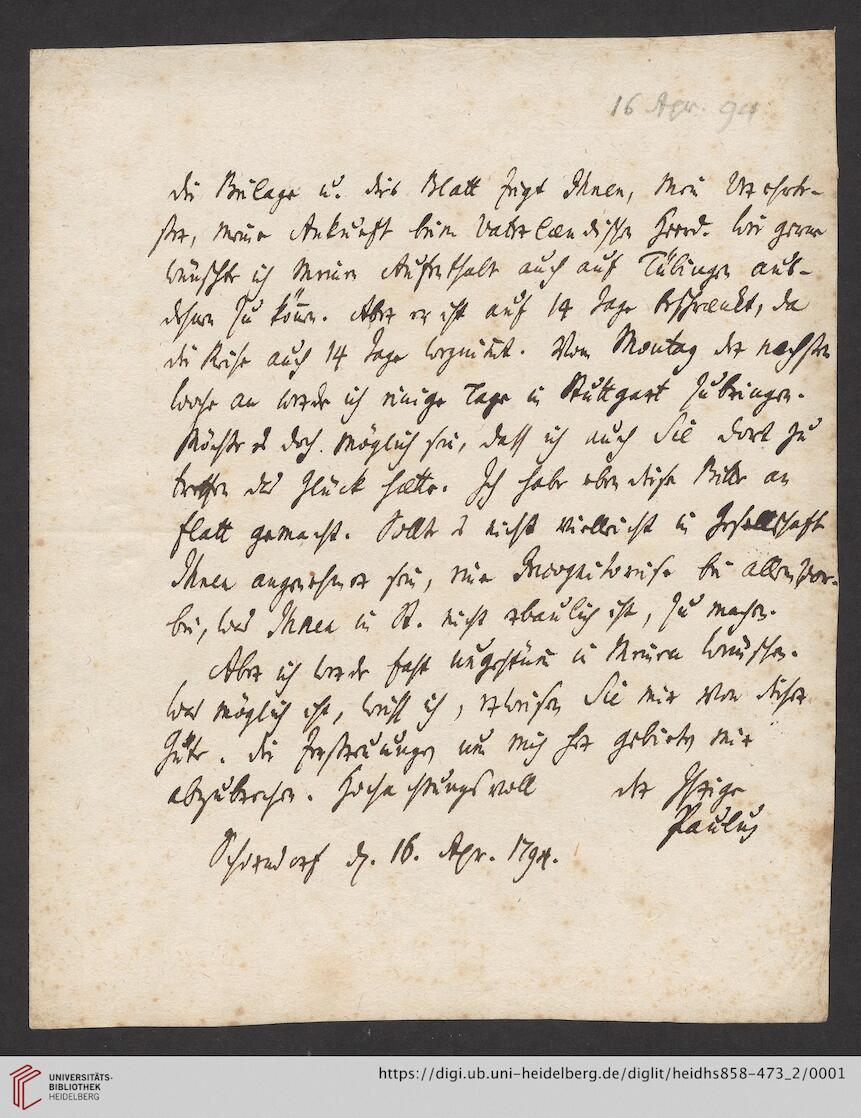 16 Apr. 94
die Beilage u. dies Blatt zeigt Ihnen, Mein Verehrte-
ster, meine Ankunft beim Vaterlaendischen Heerd. Wie gerne
wünschte ich Meinen Aufenthalt auch auf Tübingen aus-
dehnen zu können. Aber er ist auf 14 Tage beschraenkt, da
die Reise auch 14 Tage wegnimt. Vom Montag der nechsten
Woche an werde ich einige Tage in Stuttgart zubringen.
Möchte es doch möglich sein, dass ich auch Sie dort zu
treffen das Glück hætte. Ich habe eben diese Bitte an
Flatt gemacht. Sollte es nicht vielleicht in Gesellschaft
Ihnen angenehmer sein, eine Incognitoreise bei allem vor-
bei, was Ihnen in St. nicht erbaulich ist, zu machen.
Aber ich werde fast ungestüm in Meinen Wünschen.
Was möglich ist, weiss ich, erweisen Sie mir von dieser
Güte. die Zerstreuungen um mich her gebieten mir
abzubrechen. Hochachtungsvoll der Ihrige
Paulus
Schorndorf d. 16. Apr. 1794.
UNIVERSITÄTS-
BIBLIOTHEK
HEIDELBERG
https://digi.ub.uni-heidelberg.de/diglit/heidhs858-473_2/0001